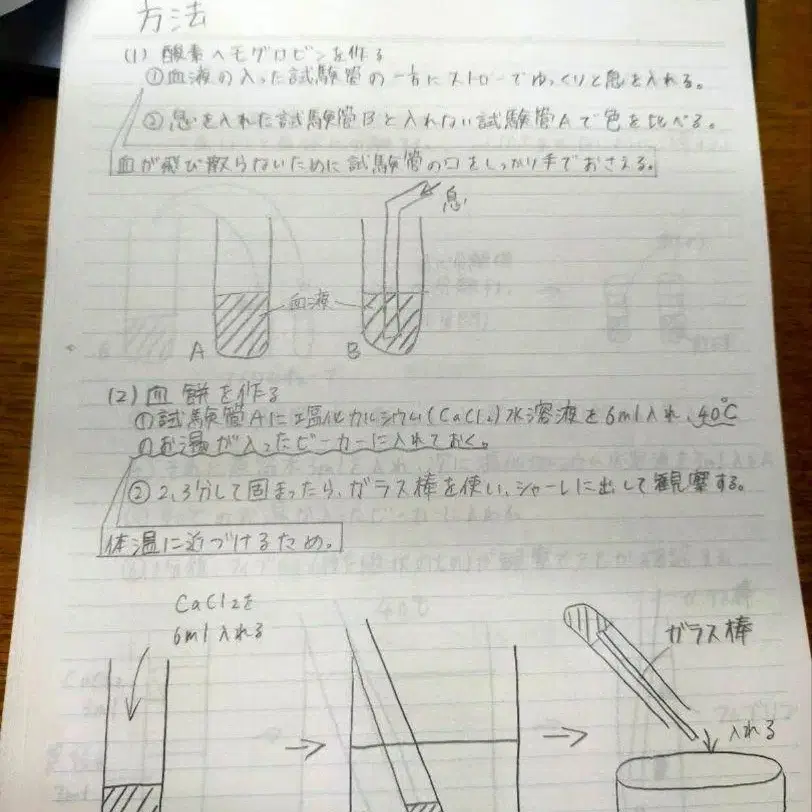 方法
(1) 酸素ヘモグロビンを作る
①血液の入った試験管の一方にストローでゆっくりと息を入れる。
②息を入れた試験管Bと入れない試験管Aで色を比べる。
血が飛び散らないために試験管の口をしっかり手でおさえる。
息
血液
A
B
(2) 血餅を作る
①試験管Aに塩化カルシウム(CaCl2)水溶液を6ml入れ、40℃
のお湯が入ったビーカーに入れておく。
②2,3分して固まったら、ガラス棒を使い、シャーレに出して観察する。
体温に近づけるため。
CaCl2を
6ml入れる
ガラス棒
入れる